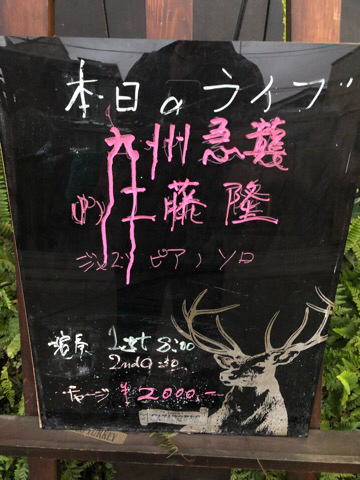 本日のライブ
九州急襲
(ゆ)工藤 隆
ジャズピアノソロ
演奏 1st 8:00
2nd 9:30
チャージ ¥2000.-